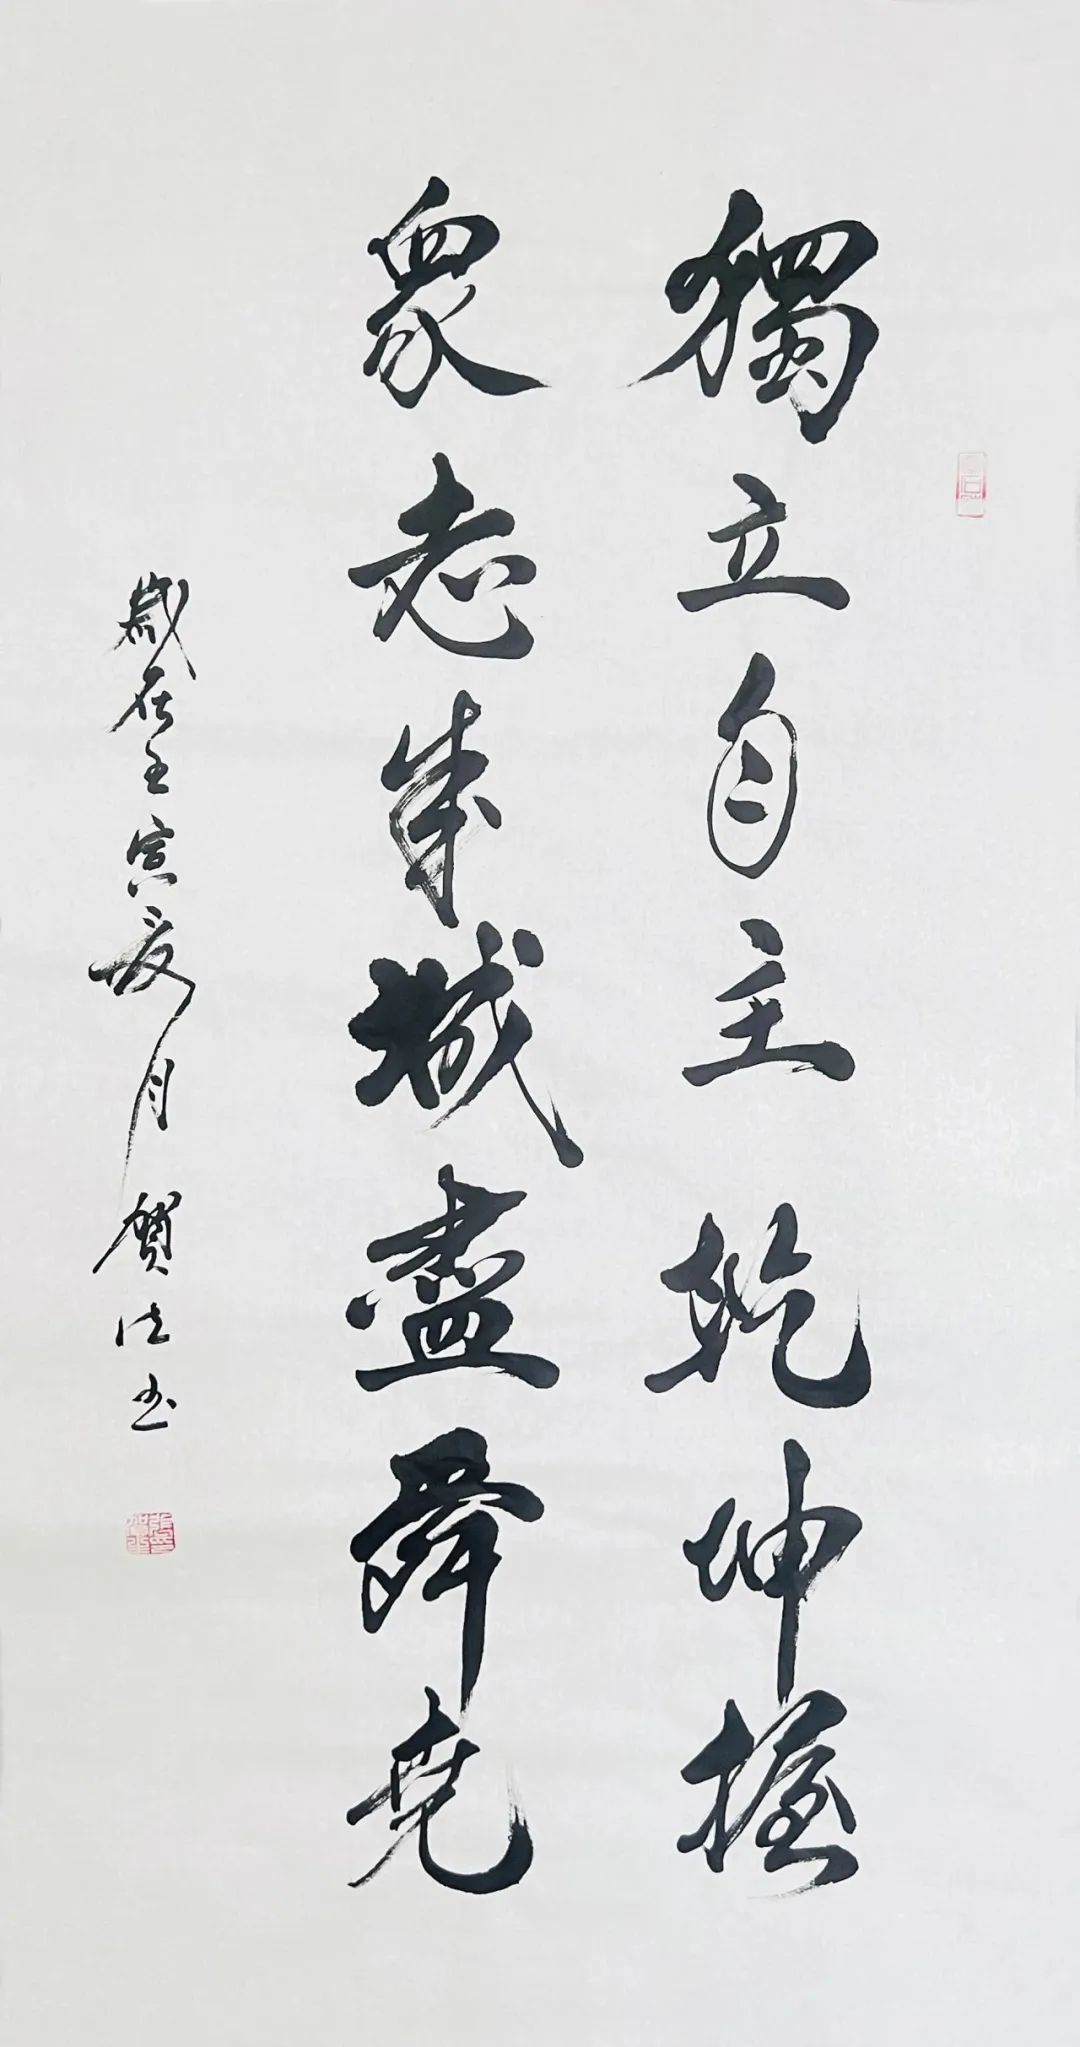 獨立自主乾坤握
衆志成城盡舜堯
歲在壬寅夏月賀法书